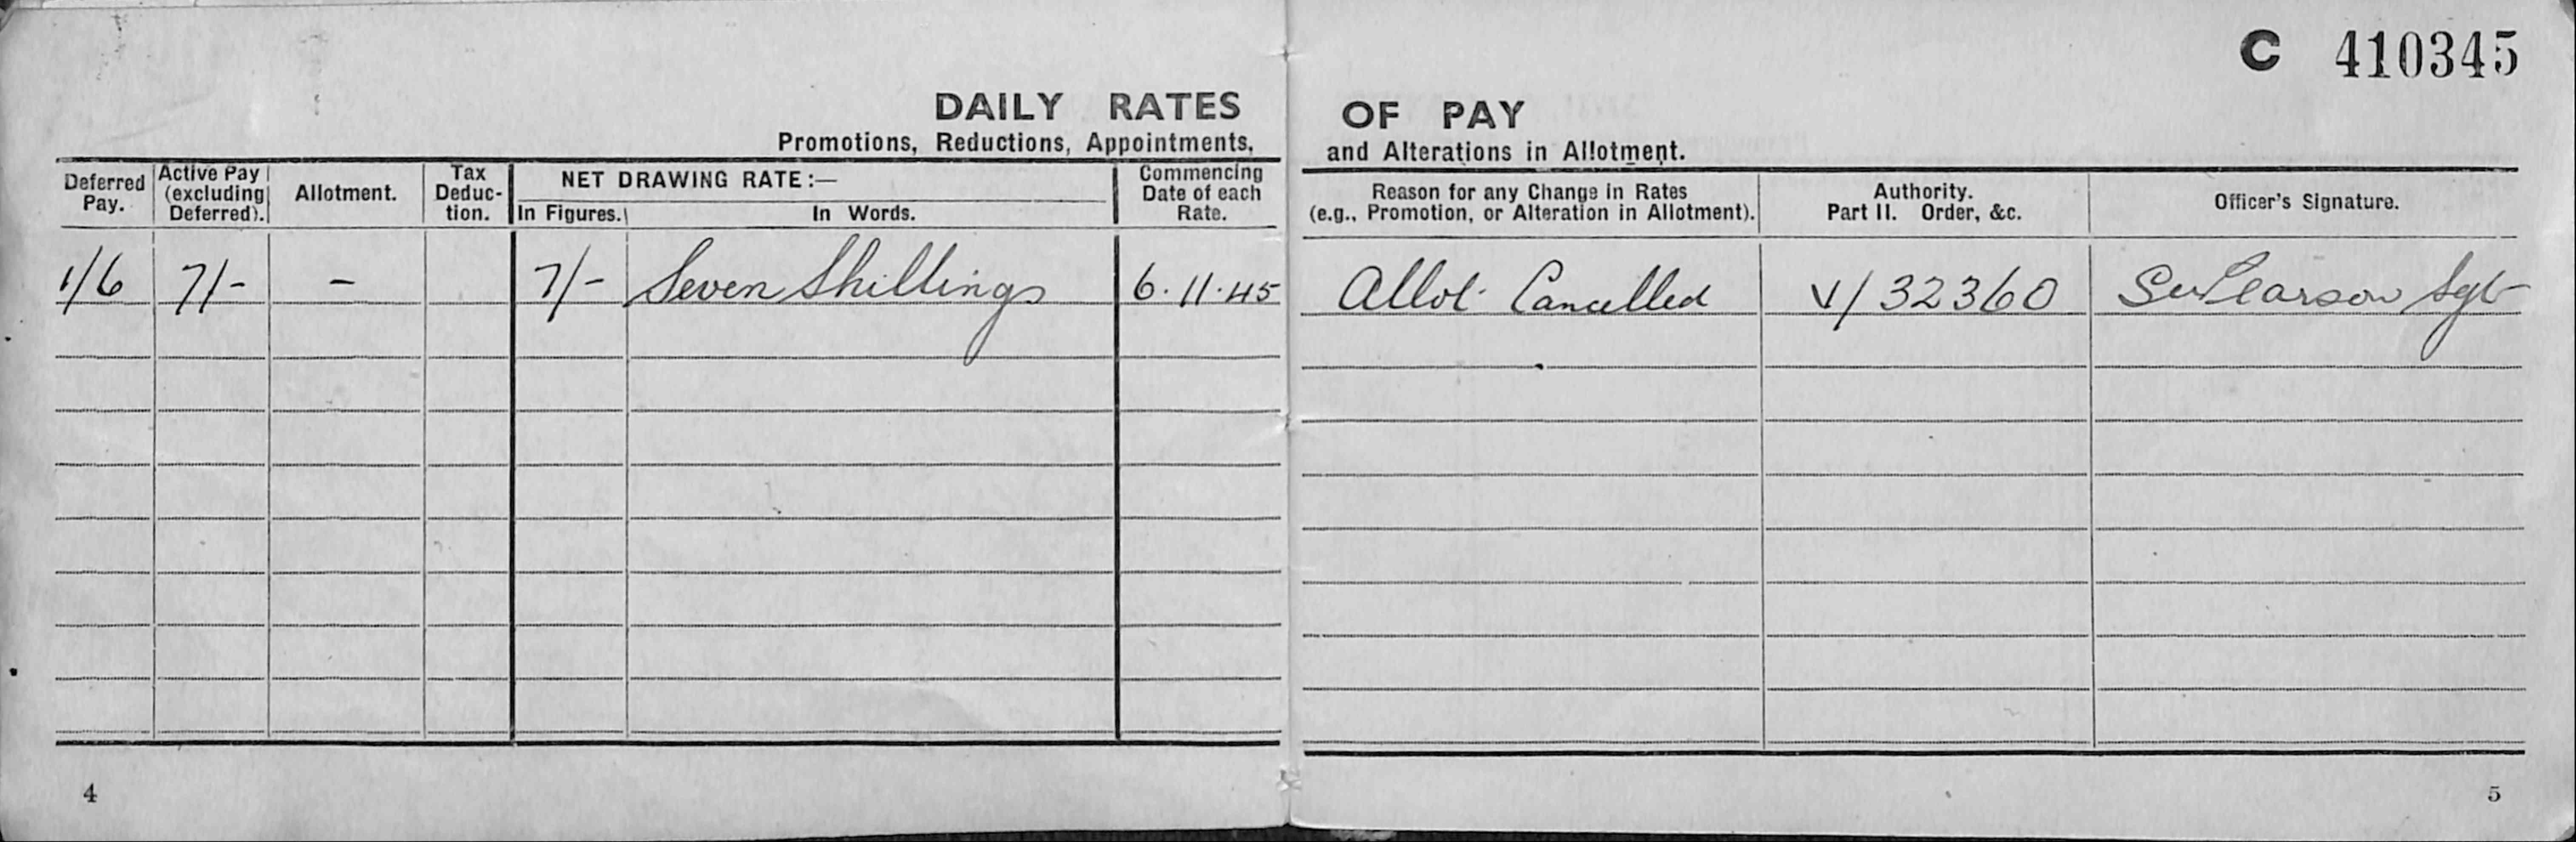 C 410345
DAILY RATES OF PAY
Promotions, Reductions, Appointments, and Alterations in Allotment.
Deferred Pay. Active Pay (excluding Deferred). Allotment. Tax Deduc-tion. NET DRAWING RATE:— In Figures. In Words. Commencing Date of each Rate. Reason for any Change in Rates (e.g., Promotion, or Alteration in Allotment). Authority. Part II. Order, &c. Officer's Signature.
1/6 7/- - 7/- Seven Shillings 6.11.45 Allot. Cancelled V/32360 Pearson Sgt
4
5